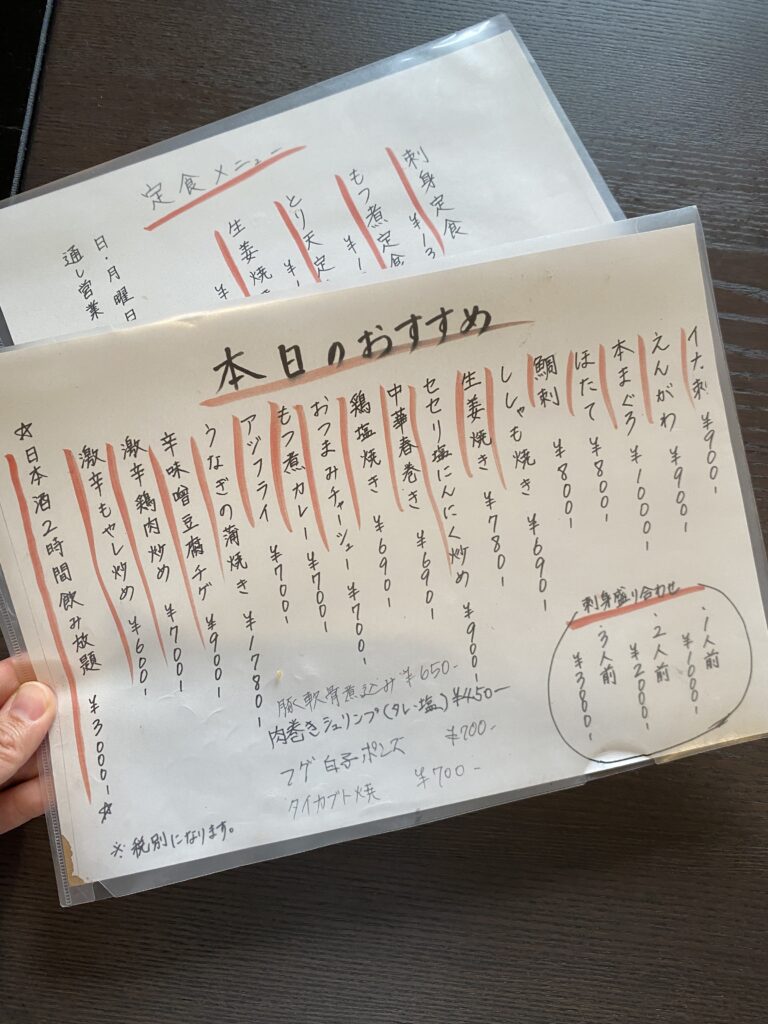 定食メニュー
刺身定食 ¥13
もつ煮定食 ¥1
とり天定 ¥1
生姜焼き ¥
日・月曜日
通し営業
本日のおすすめ
イカ刺 ¥900-
えんがわ ¥900-
本まぐろ ¥1000-
ほたて ¥800-
鯛刺 ¥800-
ししゃも焼き ¥690-
生姜焼き ¥780-
セセリ塩にんにく炒め ¥900-
中華春巻き ¥690-
鶏塩焼き ¥690-
おつまみチャーシュー ¥700-
もつ煮カレー ¥700-
アジフライ ¥700-
うなぎの蒲焼き ¥1780-
辛味噌豆腐チゲ ¥900-
激辛鶏肉炒め ¥700-
激辛もやし炒め ¥600-
☆日本酒2時間飲み放題 ¥3000-☆
刺身盛り合わせ
・1人前 ¥1000-
・2人前 ¥2000-
・3人前 ¥3000-
豚軟骨煮込み ¥650-
肉巻きシュリンプ(タレ・塩) ¥450-
フグ白子ポンズ ¥700-
タイカブト焼 ¥700-
※税別になります。